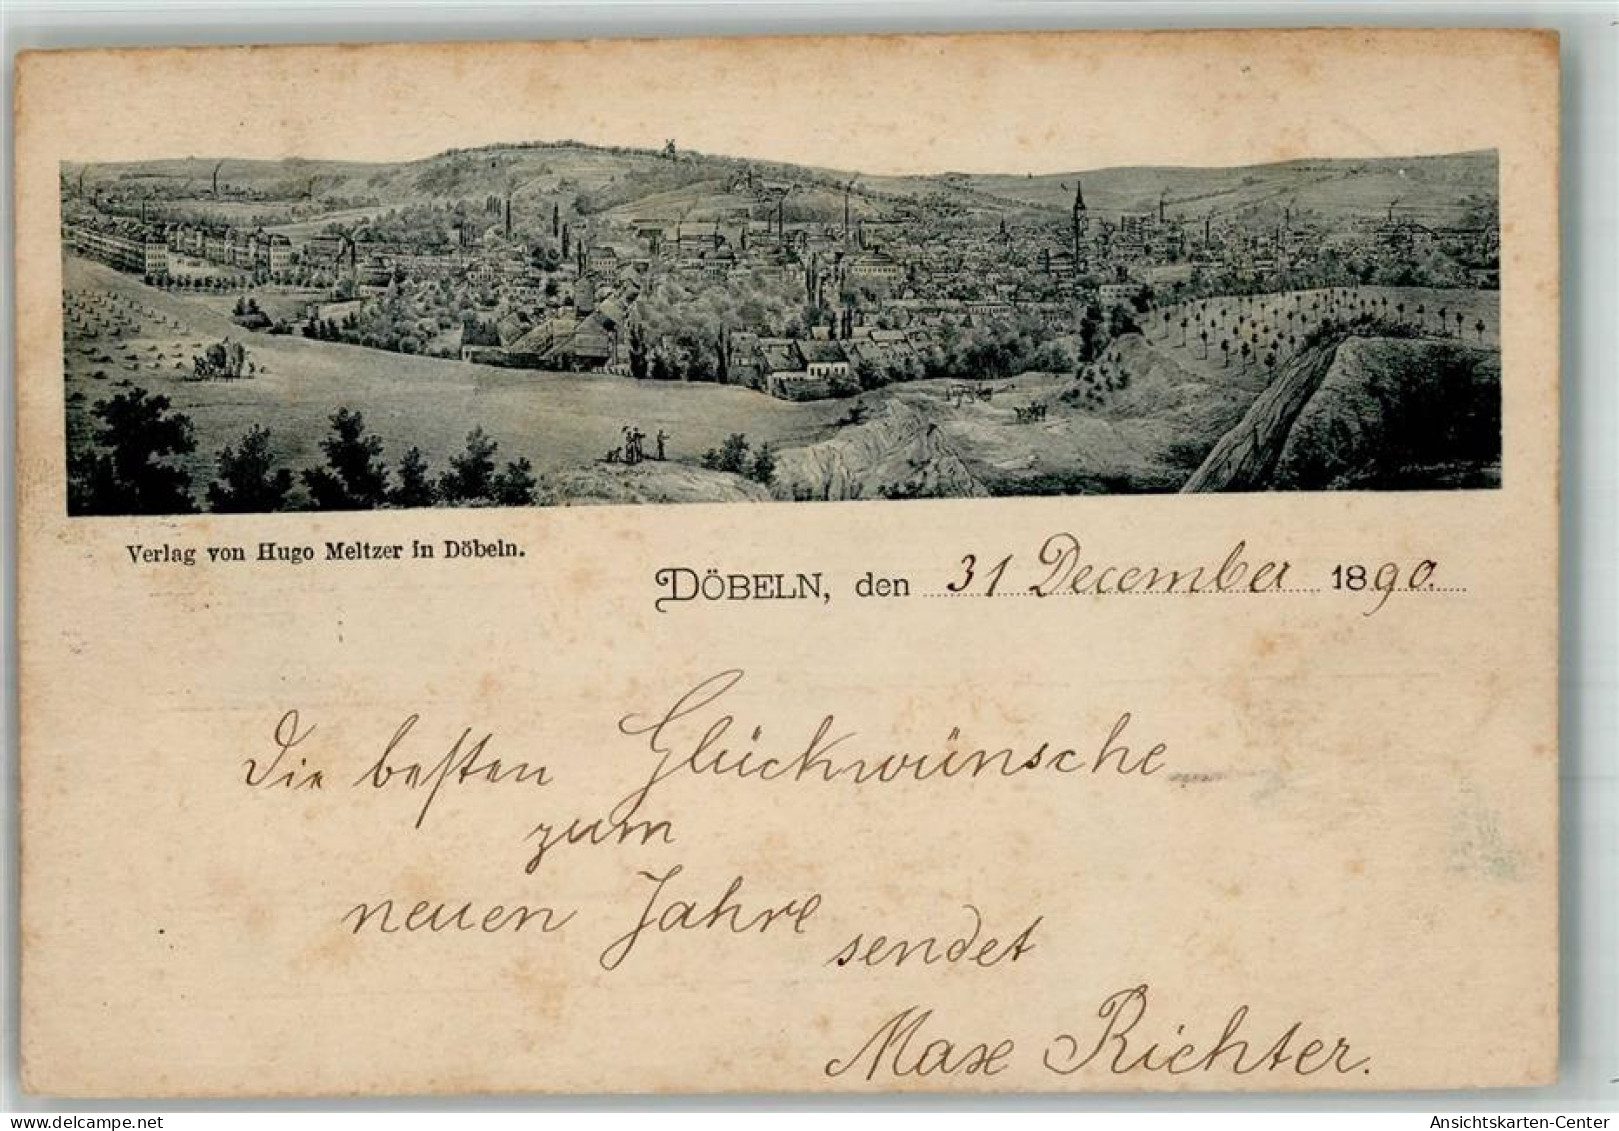 Verlag von Hugo Meltzer in Döbeln.
DÖBELN, den 31 December 1890.
Die besten Glückwünsche
zum
neuen Jahre
sendet
Max Richter.
Ansichtskarten-Center